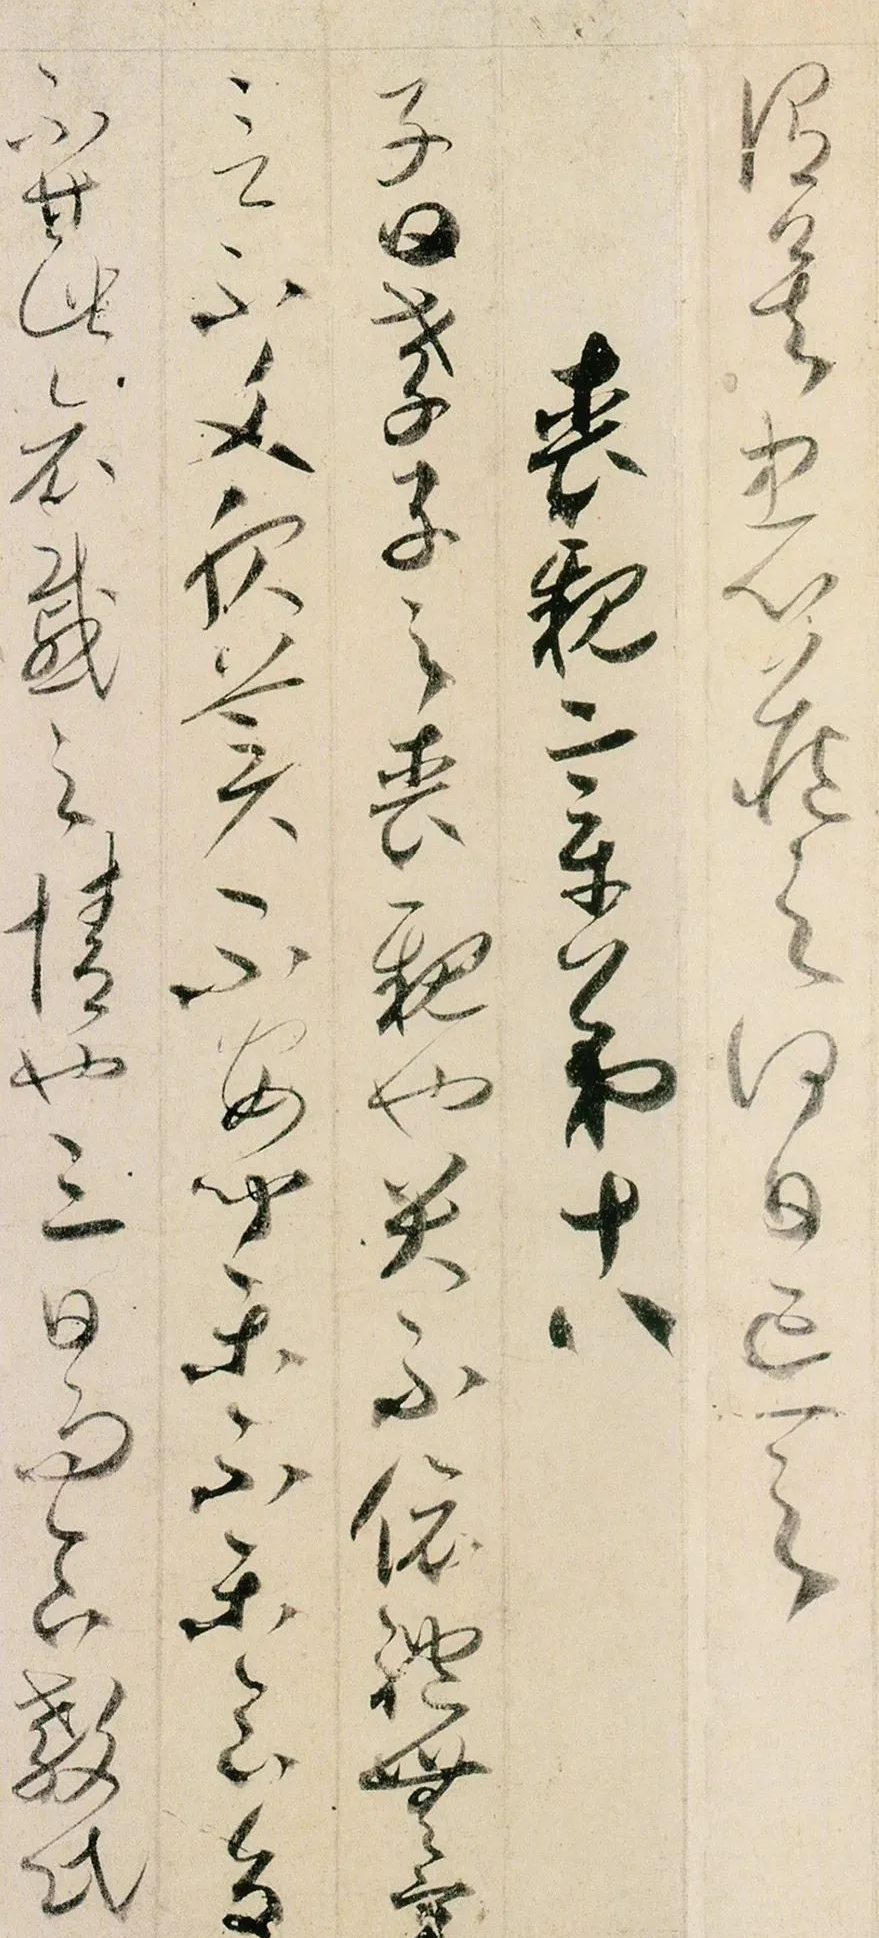 謂矣中心藏之何日忘之
喪親章第十八
子曰孝子之喪親也哭不偯禮無容
言不文服美不安聞樂不樂食旨
不甘此哀慼之情也三日而食教民